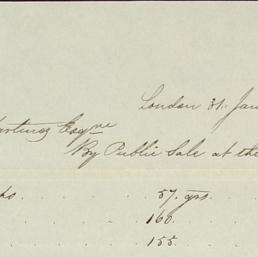 London 31. Jan
Esqre
By Public Sale at the
57. yrs.
160.
155.